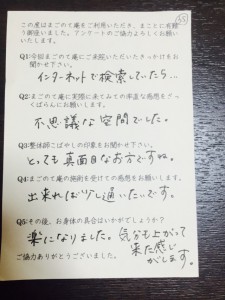 55
この度はまごのて庵をご利用いただき、まことに有難
う御座いました。アンケートのご協力よろしくお願い
いたします。
Q1:今回まごのて庵にご来院いただいたきっかけをお
聞かせ下さい。
インターネットで検索していたら…
Q2:まごのて庵に実際に来てみての率直な感想をざっ
くばらんにお願いします。
不思議な空間でした。
Q3:整体師こばやしの印象をお聞かせ下さい。
とっても真面目なお方ですね。
Q4:まごのて庵の施術を受けての感想をお願いします。
出来れば少し通いたいです。
Q5:その後、お身体の具合はいかがでしょうか?
楽になりました。気分も上がって
来た感じ
がします。
ご協力ありがとうございました。